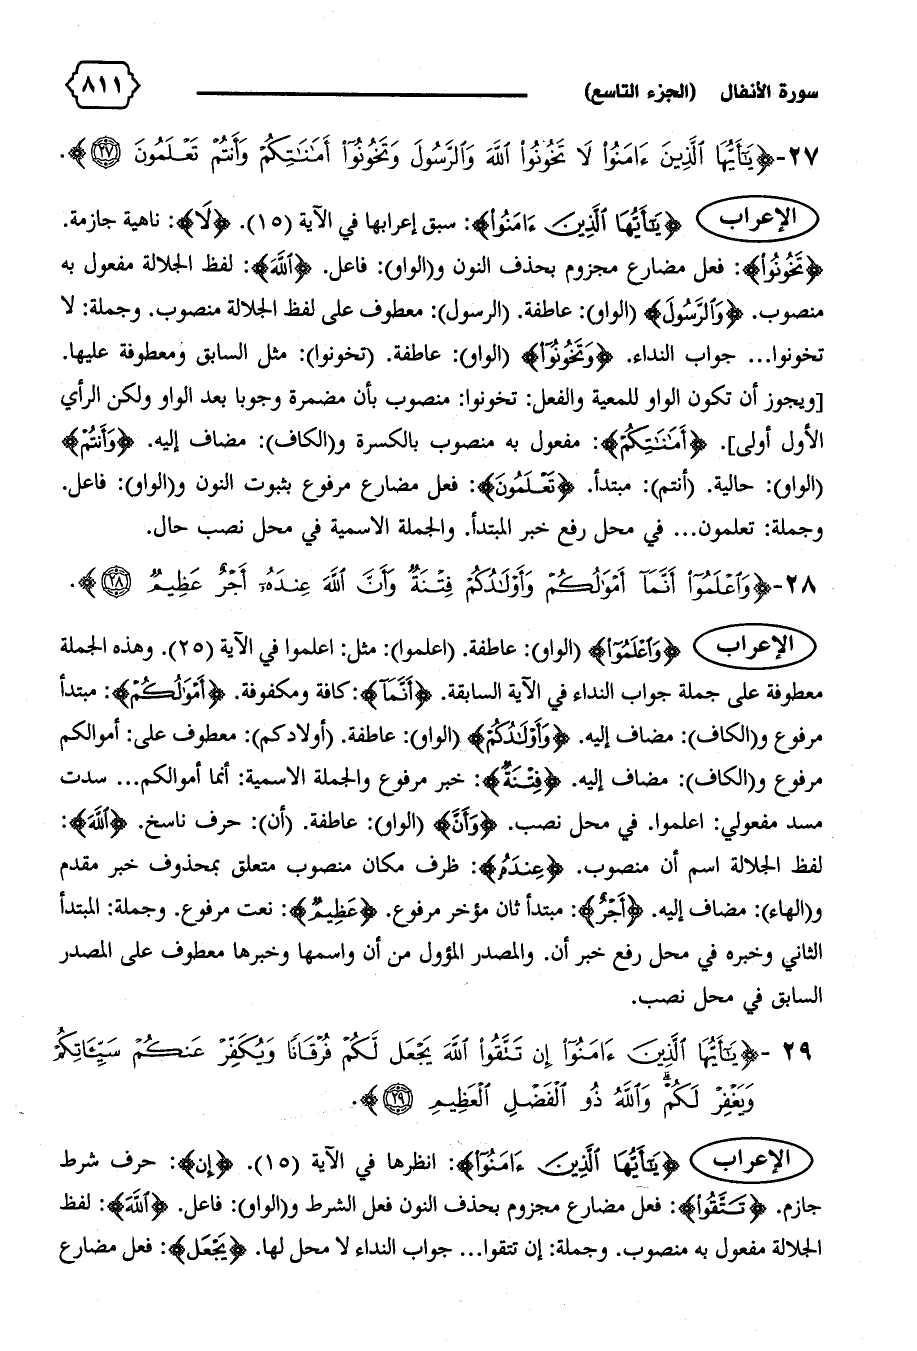 سورة الأنفال (الجزء التاسع) ٨١١
٢٧-﴿يَٰٓأَيُّهَا ٱلَّذِينَ ءَامَنُوا۟ لَا تَخُونُوا۟ ٱللَّهَ وَٱلرَّسُولَ وَتَخُونُوٓا۟ أَمَٰنَٰتِكُمْ وَأَنتُمْ تَعْلَمُونَ ٢٧﴾.
الإعراب ﴿يَٰٓأَيُّهَا ٱلَّذِينَ ءَامَنُوا۟﴾: سبق إعرابها في الآية (١٥). ﴿لَا﴾: ناهية جازمة.
﴿تَخُونُوا۟﴾: فعل مضارع مجزوم بحذف النون و(الواو): فاعل. ﴿ٱللَّهَ﴾: لفظ الجلالة مفعول به
منصوب. ﴿وَٱلرَّسُولَ﴾ (الواو): عاطفة. (الرسول): معطوف على لفظ الجلالة منصوب. وجملة: لا
تخونوا... جواب النداء. ﴿وَتَخُونُوٓا۟﴾ (الواو): عاطفة. (تخونوا): مثل السابق ومعطوفة عليها.
[ويجوز أن تكون الواو للمعية والفعل: تخونوا: منصوب بأن مضمرة وجوبا بعد الواو ولكن الرأي
الأول أولى]. ﴿أَمَٰنَٰتِكُمْ﴾: مفعول به منصوب بالكسرة و(الكاف): مضاف إليه. ﴿وَأَنتُمْ﴾
(الواو): حالية. (أنتم): مبتدأ. ﴿تَعْلَمُونَ﴾: فعل مضارع مرفوع بثبوت النون و(الواو): فاعل.
وجملة: تعلمون... في محل رفع خبر المبتدأ. والجملة الاسمية في محل نصب حال.
٢٨-﴿وَٱعْلَمُوٓا۟ أَنَّمَآ أَمْوَٰلُكُمْ وَأَوْلَٰدُكُمْ فِتْنَةٌ وَأَنَّ ٱللَّهَ عِندَهُۥٓ أَجْرٌ عَظِيمٌ ٢٨﴾.
الإعراب ﴿وَٱعْلَمُوٓا۟﴾ (الواو): عاطفة. (اعلموا): مثل: اعلموا في الآية (٢٥). وهذه الجملة
معطوفة على جملة جواب النداء في الآية السابقة. ﴿أَنَّمَآ﴾: كافة ومكفوفة. ﴿أَمْوَٰلُكُمْ﴾: مبتدأ
مرفوع و(الكاف): مضاف إليه. ﴿وَأَوْلَٰدُكُمْ﴾ (الواو): عاطفة. (أولادكم): معطوف على: أموالكم
مرفوع و(الكاف): مضاف إليه. ﴿فِتْنَةٌ﴾: خبر مرفوع والجملة الاسمية: أنما أموالكم... سدت
مسد مفعولي: اعلموا. في محل نصب. ﴿وَأَنَّ﴾ (الواو): عاطفة. (أن): حرف ناسخ. ﴿ٱللَّهَ﴾:
لفظ الجلالة اسم أن منصوب. ﴿عِندَهُۥ﴾: ظرف مكان منصوب متعلق بمحذوف خبر مقدم
و(الهاء): مضاف إليه. ﴿أَجْرٌ﴾: مبتدأ ثان مؤخر مرفوع. ﴿عَظِيمٌ﴾: نعت مرفوع. وجملة: المبتدأ
الثاني وخبره في محل رفع خبر أن. والمصدر المؤول من أن واسمها وخبرها معطوف على المصدر
السابق في محل نصب.
٢٩ -﴿يَٰٓأَيُّهَا ٱلَّذِينَ ءَامَنُوٓا۟ إِن تَتَّقُوا۟ ٱللَّهَ يَجْعَل لَّكُمْ فُرْقَانًا وَيُكَفِّرْ عَنكُمْ سَيِّـَٔاتِكُمْ
وَيَغْفِرْ لَكُمْ ۗ وَٱللَّهُ ذُو ٱلْفَضْلِ ٱلْعَظِيمِ ٢٩﴾.
الإعراب ﴿يَٰٓأَيُّهَا ٱلَّذِينَ ءَامَنُوٓا۟﴾: انظرها في الآية (١٥). ﴿إِن﴾: حرف شرط
جازم. ﴿تَتَّقُوا۟﴾: فعل مضارع مجزوم بحذف النون فعل الشرط و(الواو): فاعل. ﴿ٱللَّهَ﴾: لفظ
الجلالة مفعول به منصوب. وجملة: إن تتقوا... جواب النداء لا محل لها. ﴿يَجْعَل﴾: فعل مضارع